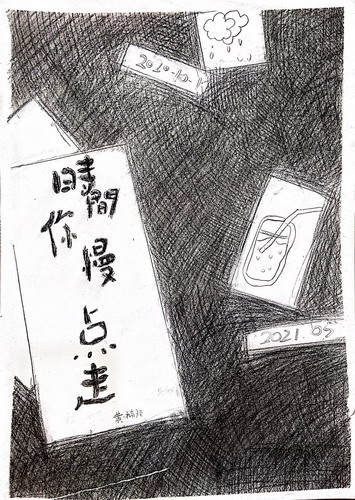 2020.10.1
時間
你
慢
点
走
2021.05